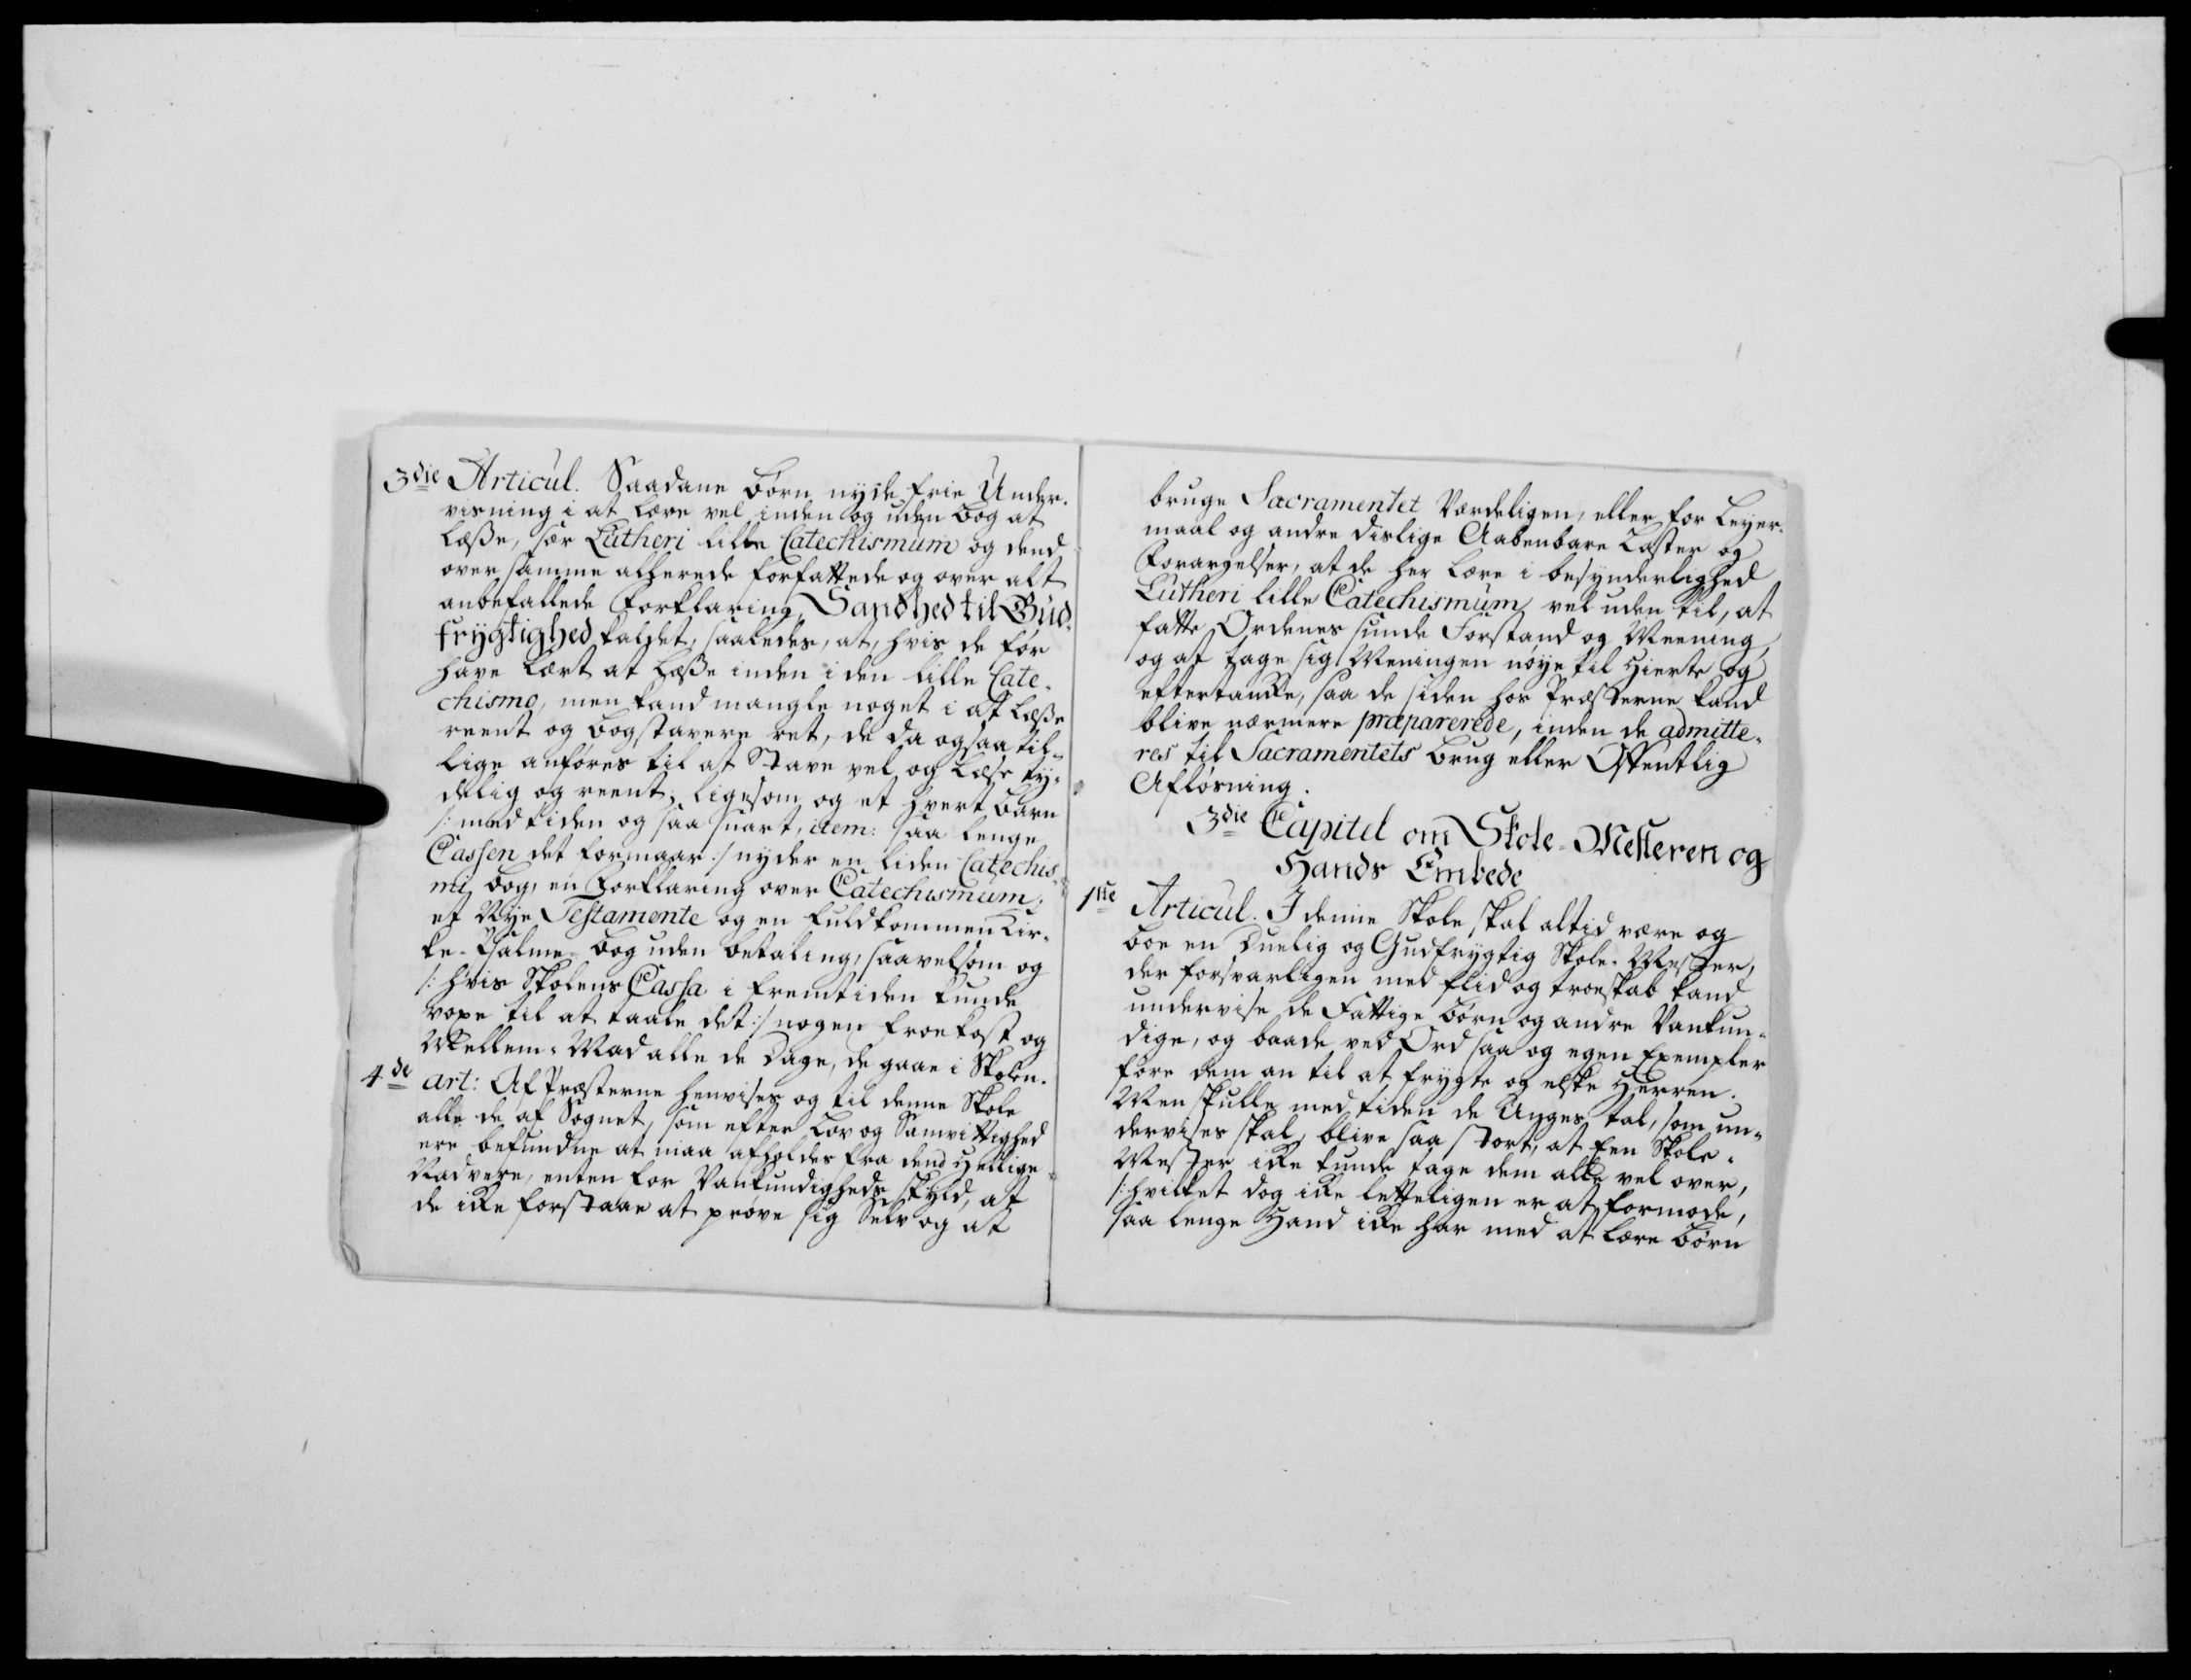 3die Articul. Saadane Børn nyde frie Under-
visning i at lære vel inden og uden bog at
læsse, sær Lutheri lille Catechismum og dend
over samme allerede forfattede og over alt
anbefallede Forklaring, Sandhed til Gud-
frygtighed kaldet, saaledes, at, hvis de før
have lært at læsse inden i den lille Cate-
chismo, men kand mangle noget i at læsse
reent og bogstavere ret, de da ogsaa til-
lige anføres til at Stave vel og læse ty-
delig og reent; ligesom og et hvert barn
/: med tiden og saa snart, item: saa lenge
Cassen det formaar :/ nyder en liden Catechis-
mi bog, en Forklaring over Catechismum,
et Nye Testamente og en fuldkommen Kir-
ke-Psalme-bog uden betaling, saavelsom og
/: hvis Skolens Cassa i fremtiden kunde
voxe til at taale det :/ nogen froekost og
Mellem-Mad alle de dage, de gaae i Skolen.
4de art: Af Præsterne henvises og til denne Skole
alle de af Sognet, som efter Lov og Samvittighed
ere befundne at maa afholdes fra dend Hellige
Nadvere, enten for Vankundigheds skyld, at
de ikke forstaae at prøve sig Selv og at
bruge Sacramentet Værdeligen, eller for Leyer-
maal og andre dislige Aabenbare Laster og
Forargelser, at de her lære i besynderlighed
Lutheri lille Catechismum vel uden til, at
fatte Ordenes sunde Forstand og Meening,
og at tage sig Meningen nøye til Hierte og
eftertanke, saa de siden hos Præsterne kand
blive nærmere præparerede, inden de admitte-
res til Sacramentets brug eller Offentlig
Afløsning.
3die Capitel om Skole-Mesteren og
Hands Embede
1ste Articul. I denne Skole skal altid være og
boe en duelig og Gudfrygtig Skole-Mester,
der forsvarligen med flid og troeskab kand
undervise de Fattige børn og andre Vankun-
dige, og baade ved Ord saa og egen Exempler
føre dem an til at frygte og elske Herren.
Men skulle med tiden de Unges tal, som un-
dervises skal, blive saa stort, at Een Skole-
Mester ikke kunde tage dem alle vel over,
/: hvilket dog ikke letteligen er at formode,
saa lenge Hand ikke har med at lære Børn